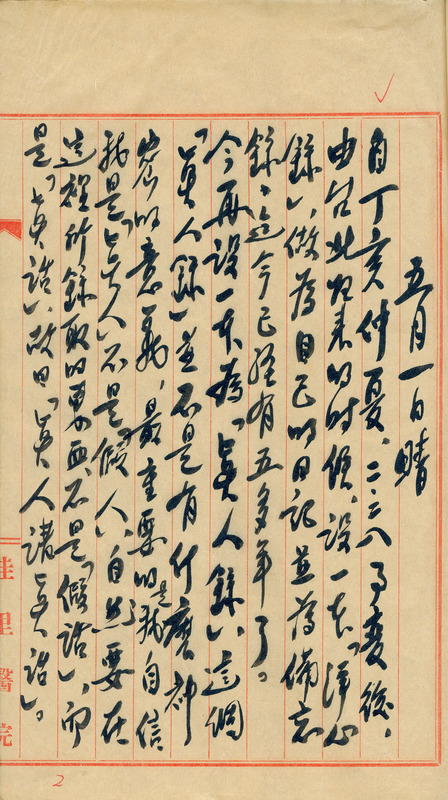 五月一日晴
自丁亥仲夏、二二八事變後、
由台北歸來的時候、設一本「淨心
錄」、做為自己的日記並為備忘
錄、迄今已經有五多年了。
今再設一本為「真人錄」、這個
「真人錄」並不是有什麼神
密的意義、最重要的是我自信
我是「真人」不是「假人」、自然要在
這裡所錄取的東西、不是「假話」、而
是「真話」、故曰「真人講真話」。
佳里醫院
2